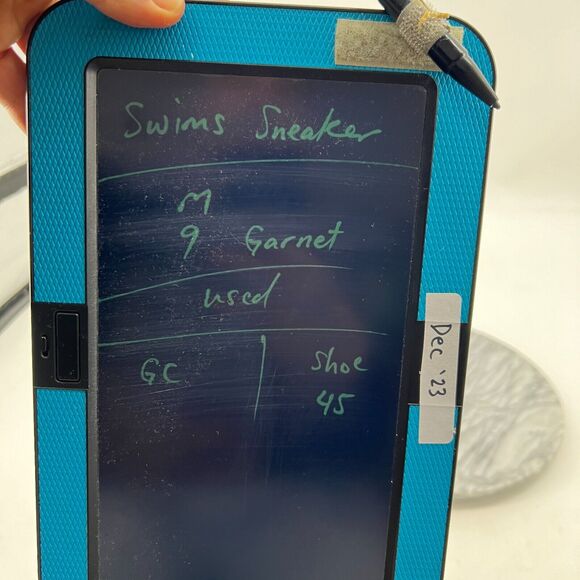 Swims Sneaker
M
9 Garnet
used
GC
Shoe
45
Dec '23